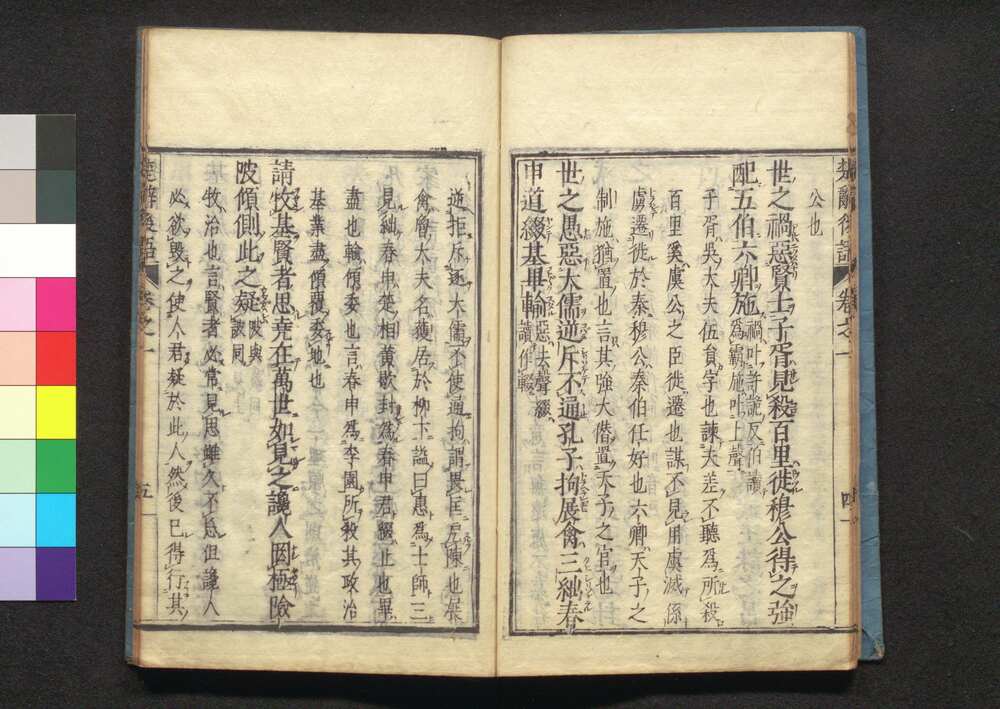 楚辭後語 卷之一 四
公也
世之禍惡賢士子胥見殺百里徙穆公得之強
配五伯六卿施禍叶許詭反伯讀為霸施叶上聲
子胥吳大夫伍員字也諫夫差不聽為所殺
百里奚虞公之臣徙遷也謀不見用虞滅係
虜遷徙於秦穆公秦伯任好也六卿天子之
制施猶置也言其強大僭置天子之官也
世之愚惡大儒逆斥不通孔子拘展禽三絀春
申道綴基畢輸惡去聲綴讀作輟
逆拒斥逐大儒不使通拘謂畏匡厄陳也展
禽魯大夫名獲居於柳下諡曰惠為士師三
見絀春申楚相黃歇封為春申君綴止也畢
盡也輸傾委也言春申為李園所殺其政治
基業盡傾覆委地也
請牧基賢者思堯在萬世如見之讒人罔極險
陂傾側此之疑陂與詖同
牧治也言賢者必常見思雖久不忘但讒人
必欲毀之使人君疑於此人然後已得行其
楚辭後語 卷之一 五